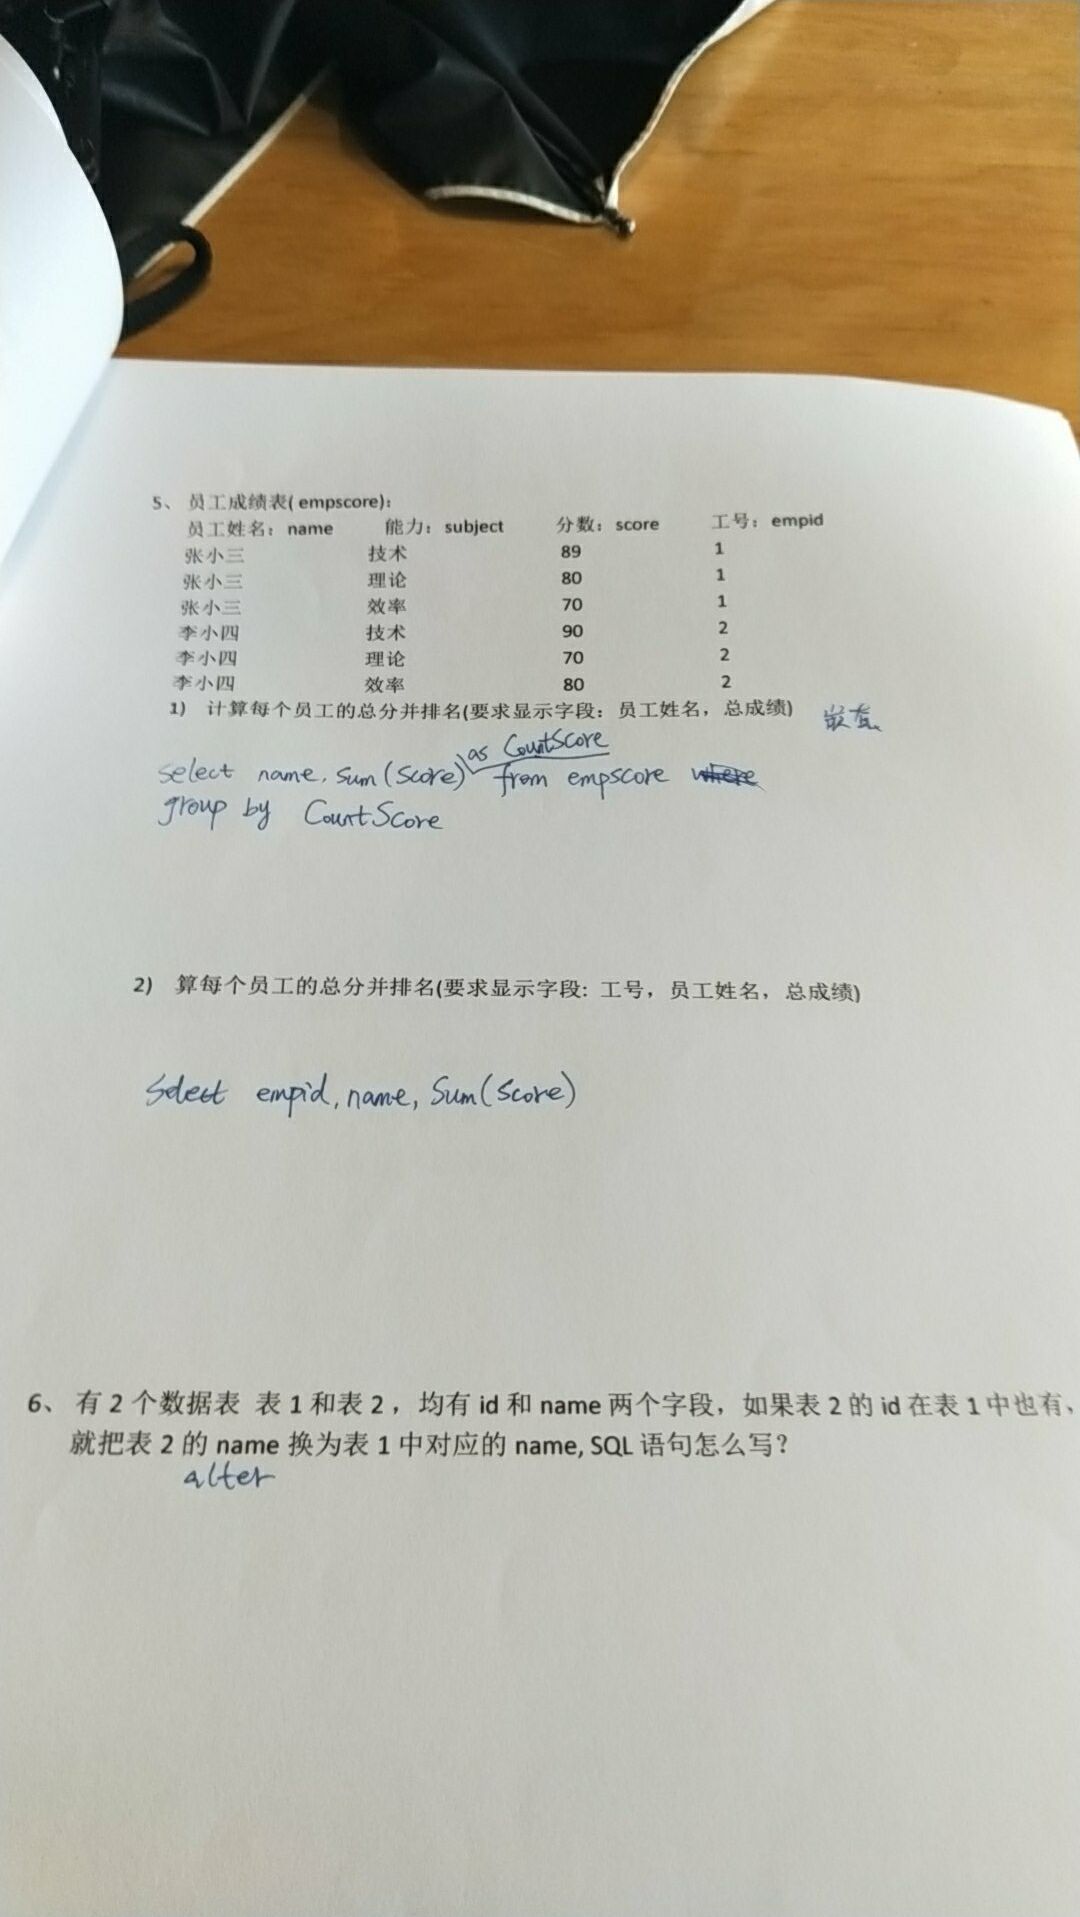 5、 员工成绩表( empscore):
员工姓名: name 能力: subject 分数: score 工号: empid
张小三 技术 89 1
张小三 理论 80 1
张小三 效率 70 1
李小四 技术 90 2
李小四 理论 70 2
李小四 效率 80 2
1) 计算每个员工的总分并排名(要求显示字段: 员工姓名, 总成绩)
as CountScore
select name, Sum(Score) from empscore where
group by CountScore
2) 算每个员工的总分并排名(要求显示字段: 工号, 员工姓名, 总成绩)
Select empid, name, Sum(Score)
6、 有 2 个数据表 表 1 和表 2 , 均有 id 和 name 两个字段, 如果表 2 的 id 在表 1 中也有、
就把表 2 的 name 换为表 1 中对应的 name, SQL 语句怎么写?
alter